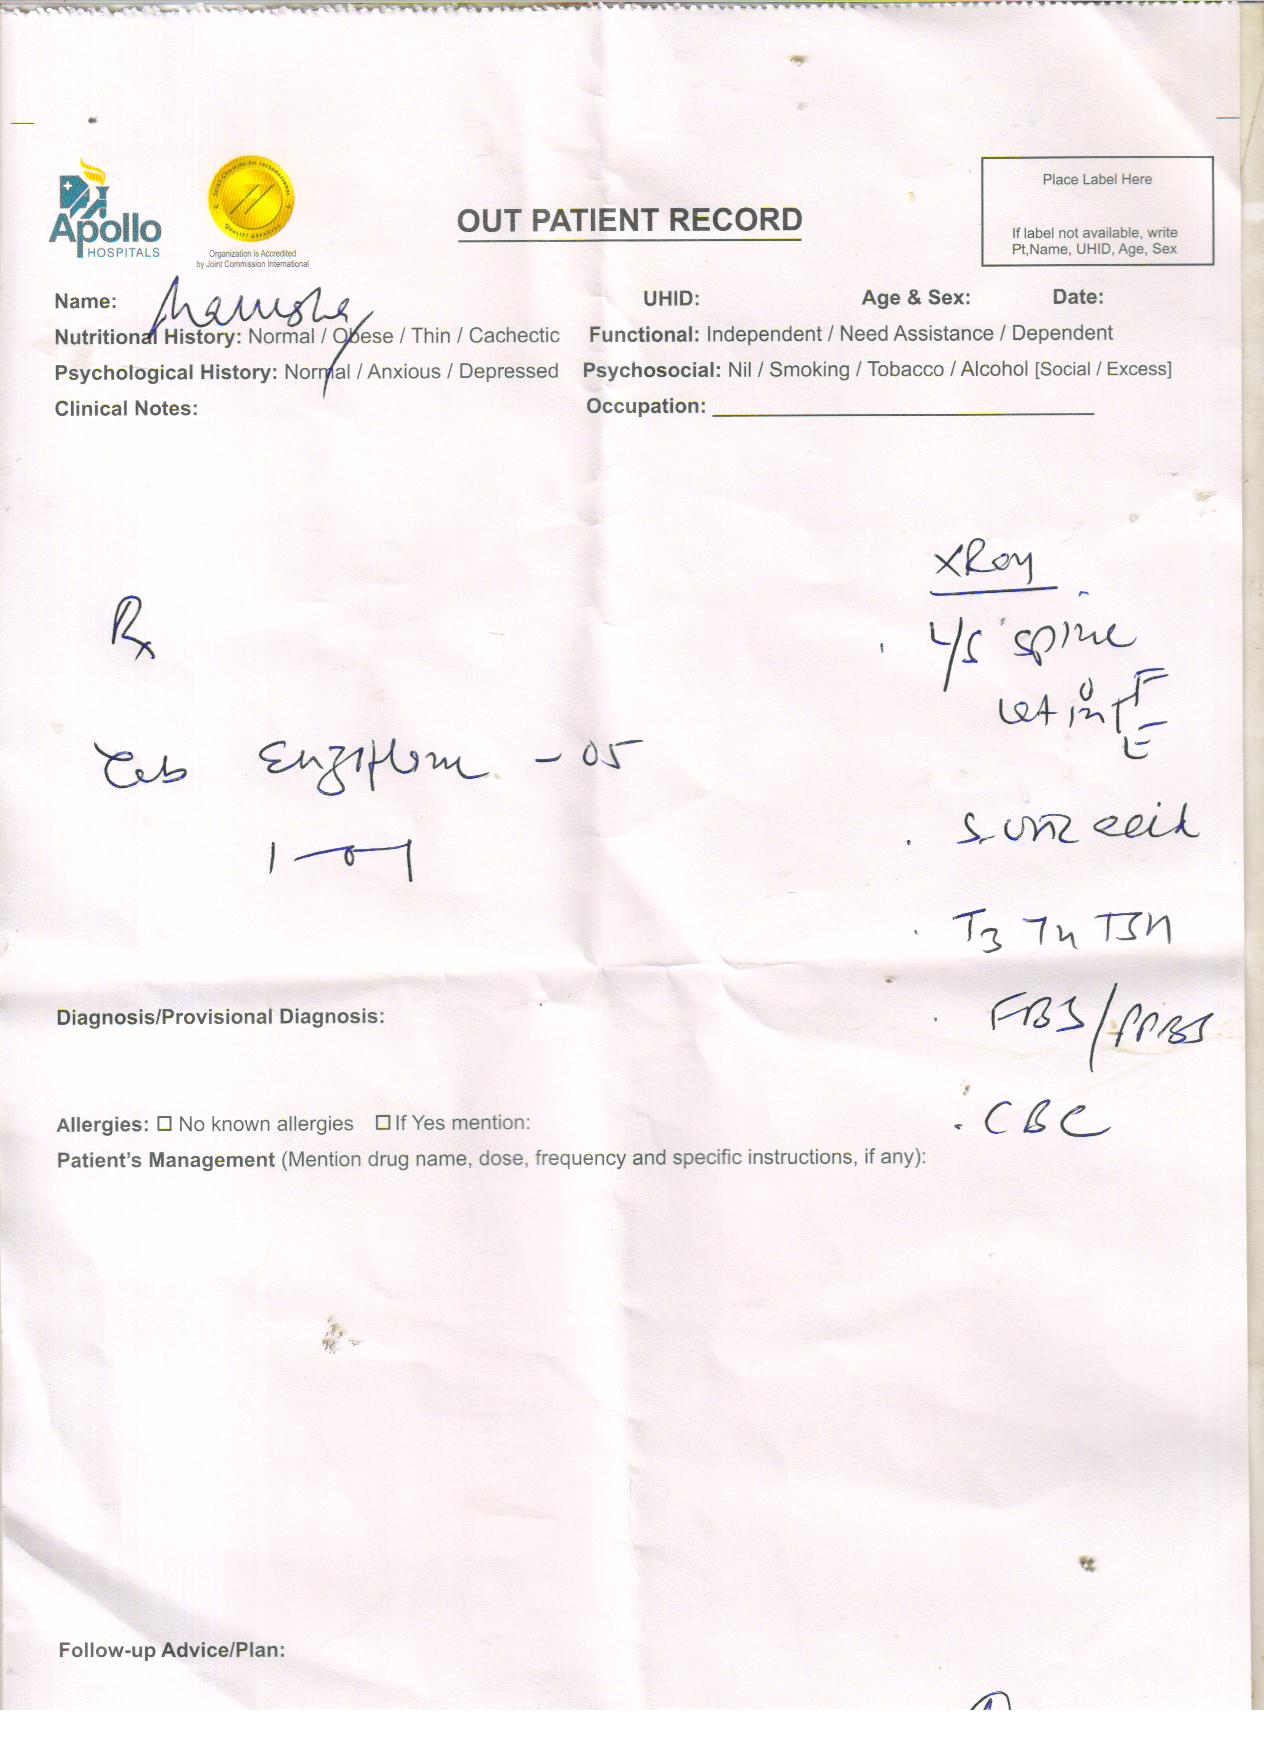 Apollo
HOSPITALS
JOINT COMMISSION INTERNATIONAL
QUALITY APPROVAL
Organization is Accredited
by Joint Commission International
OUT PATIENT RECORD
Place Label Here
If label not available, write
Pt,Name, UHID, Age, Sex
Name: UHID: Age & Sex: Date:
Nutritional History: Normal / Obese / Thin / Cachectic Functional: Independent / Need Assistance / Dependent
Psychological History: Normal / Anxious / Depressed Psychosocial: Nil / Smoking / Tobacco / Alcohol [Social / Excess]
Clinical Notes: Occupation:
XRay
Rx
L/S spine
Lat in F
E
Tab Enziflam - 05
1-0-1
S. Uric acid
T3 T4 TSH
FBS/PPBS
Diagnosis/Provisional Diagnosis:
CBC
Allergies: No known allergies If Yes mention:
Patient's Management (Mention drug name, dose, frequency and specific instructions, if any):
Follow-up Advice/Plan: